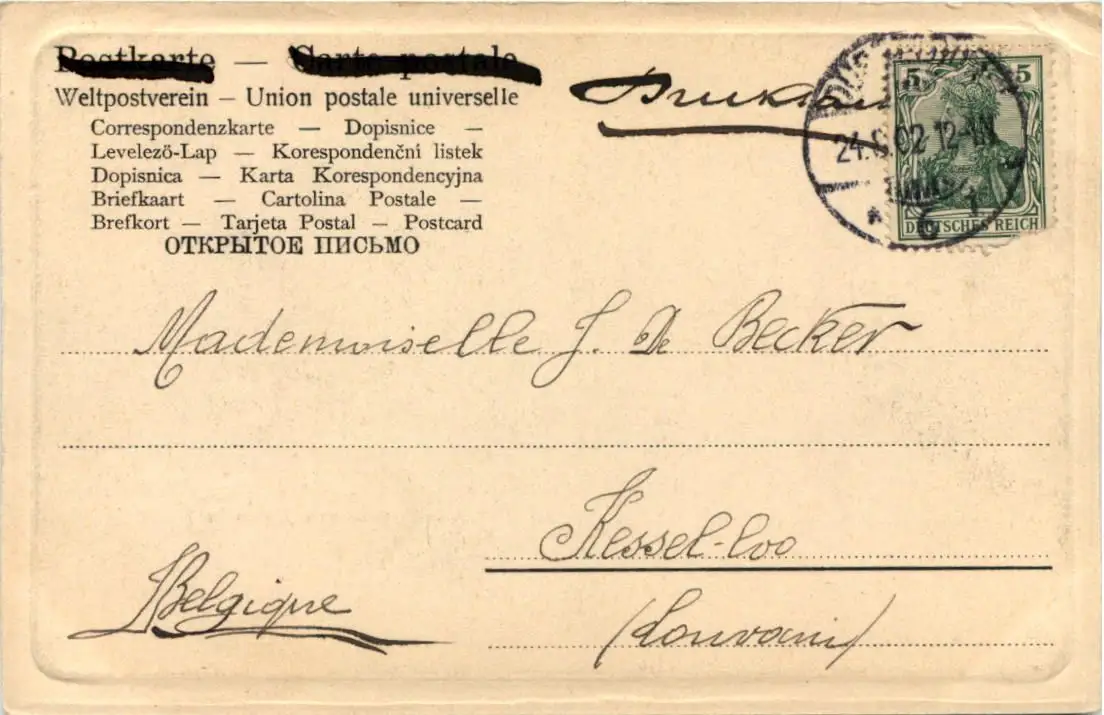 Postkarte — Carte postale
Druksach
5 5
Weltpostverein – Union postale universelle
Correspondenzkarte — Dopisnice —
Levelezö-Lap — Korespondenční listek
Dopisnica — Karta Korespondencyjna
Briefkaart — Cartolina Postale —
Brefkort — Tarjeta Postal — Postcard
ОТКРЫТОЕ ПИСЬМО
24.6.02 12-1N
* 6 1
DEUTSCHES REICH
Mademoiselle J. De Becker
Kessel-Loo
Belgique
(Louvain)